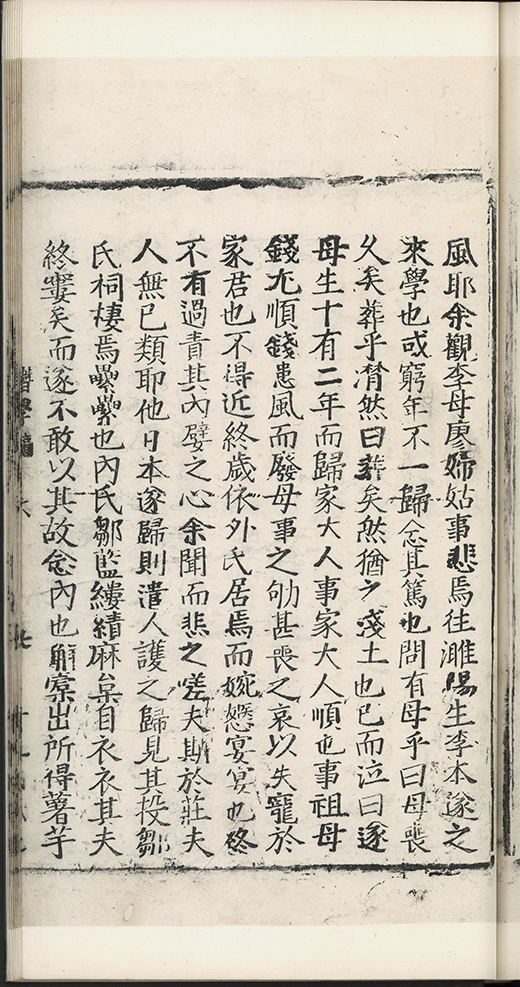 風耶余觀李母廖婦姑事悲焉往濉陽生李本遂之
來學也或窮年不一歸念其篤也問有母乎曰母喪
久矣葬乎潸然曰葬矣然猶之淺土也已而泣曰遂
母生十有二年而歸家大人事家大人順也事祖母
錢尢順錢患風而廢母事之劬甚喪之哀以失寵於
家君也不得近終歲依外氏居焉而婉愬宴宴也終
不有過責其內嬖之心余聞而悲之嗟夫斯於莊夫
人無已類耶他日本遂歸則遣人護之歸見其投鄒
氏祠棲焉纍纍也內氏鄒藍縷績麻枲自衣衣其夫
終窶矣而遂不敢以其故念內也解橐出所得薯芋